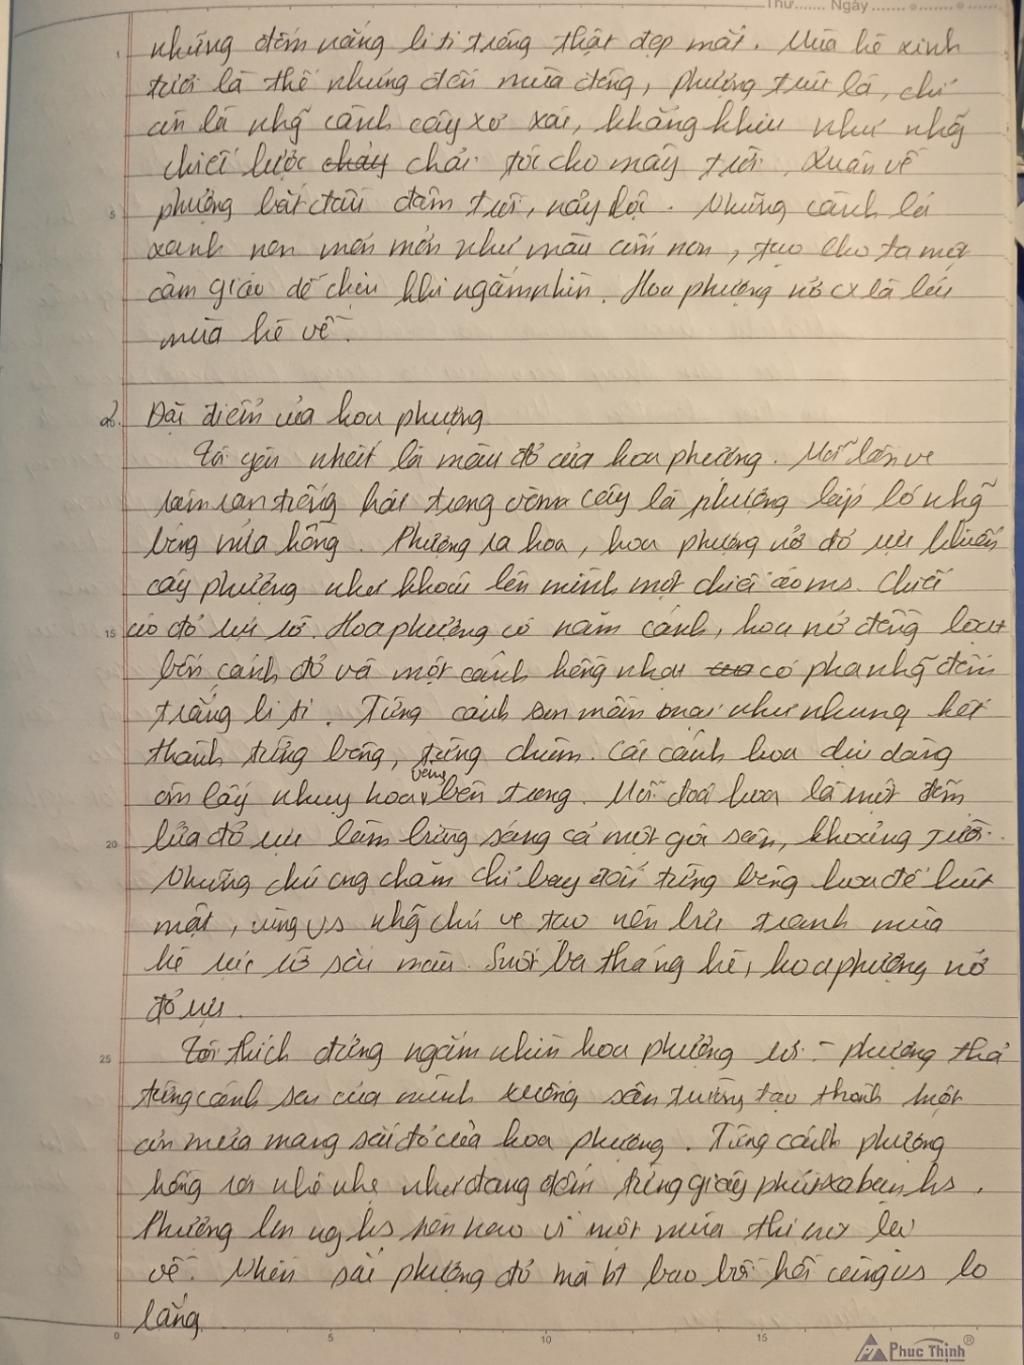 Thứ....... Ngày.......
những đốm nắng li ti trông thật đẹp mắt. Mùa hè xinh
tươi là thế nhưng đến mùa đông, phượng trút lá, chỉ
còn là nhg~ cành cây xơ xác, khẳng khiu như nhg~
chiếc lược chải tóc cho mây trời. Xuân về
phượng bắt đầu đâm trồi, nảy lộc. Những cành lá
xanh non mơn mởn như màu cốm non, tạo cho ta một
cảm giác dễ chịu khi ngắm nhìn. Hoa phượng nở cx là lúc
mùa hè về.
2. Đặc điểm của hoa phượng
Tôi yêu nhất là màu đỏ của hoa phượng. Mỗi lần ve
râm ran tiếng hát trong vòm cây là phượng lấp ló nhg~
bông hoa hồng. Phượng ra hoa, hoa phượng nở đỏ rực khiến
cây phượng như khoác lên mình một chiếc áo ms. Chiếc
áo đỏ rực rỡ. Hoa phượng có năm cánh, hoa nở đồng loạt
bốn cánh đỏ và một cánh hồng nhạt có pha nhg~ đốm
trắng li ti. Từng cánh hoa mềm mại như nhung kết
thành từng bông, từng chùm. Các cánh hoa dịu dàng
ôm lấy nhụy hoa vàng bên trong. Mỗi đoá hoa là một đốm
lửa đỏ rực làm bừng sáng cả một góc sân, khoảng trời.
Những chú ong chăm chỉ bay đến từng bông hoa để hút
mật, cùng vs nhg~ chú ve tạo nên bức tranh mùa
hè rực rỡ sắc màu. Suốt ba tháng hè, hoa phượng nở
đỏ rực.
Tôi thích đứng ngắm nhìn hoa phượng rơi - phượng thả
từng cánh son của mình xuống sân trường tạo thành một
cơn mưa mang sắc đỏ của hoa phượng. Từng cánh phượng
hồng rơi nhè nhẹ như đang đếm từng giây phút xa bạn hs.
Phượng làm ng hs nôn nao vì một mùa thi nx lại
về. Nhìn sắc phượng đỏ mà bt bao bồi hồi cùng vs lo
lắng
Phuc Thinh®